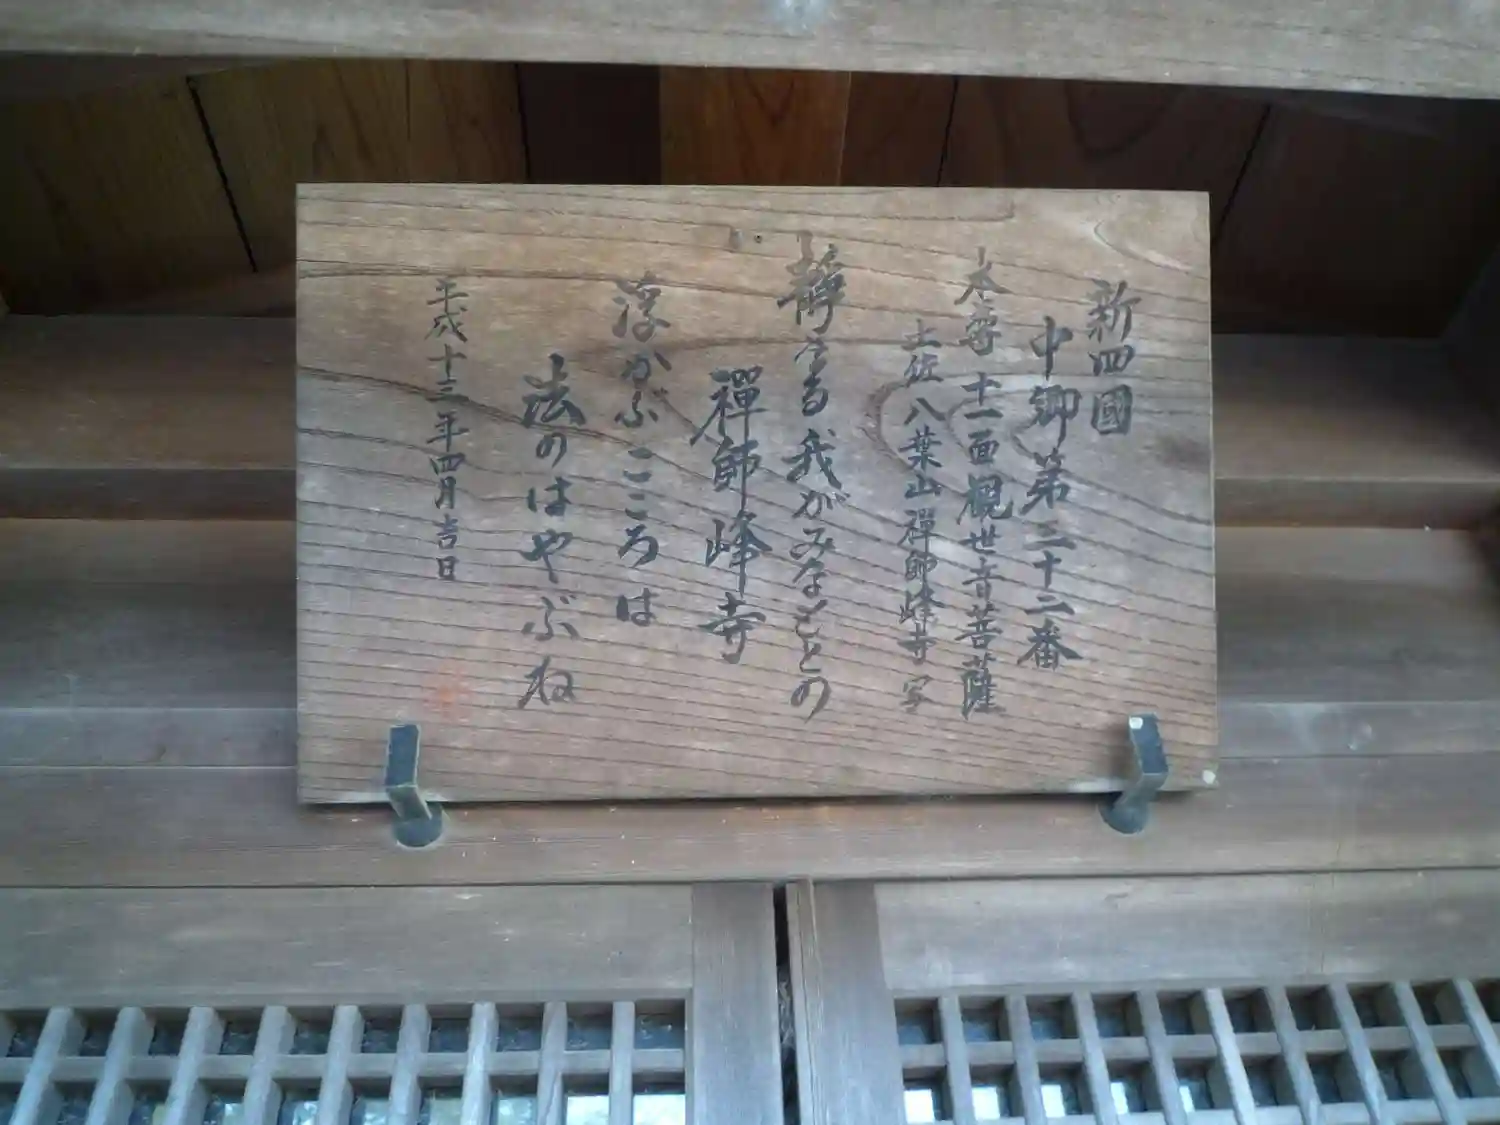 新四國
中郷第三十二番
本尊十一面観世音菩薩
土佐八葉山禪師峰寺写
静かなる我がみなもとの
禪師峰寺
浮かぶこころは
法のはやぶね
平成十三年四月吉日